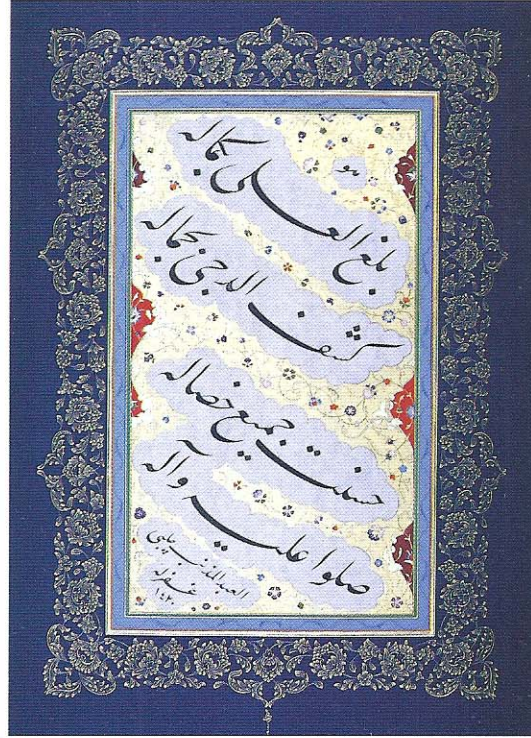 هو
بلغ العلی بکماله
کشف الدجی بجماله
حسنت جمیع خصاله
صلوا علیه وآله
العبد المذنب
غفر له
۱۴۲۰